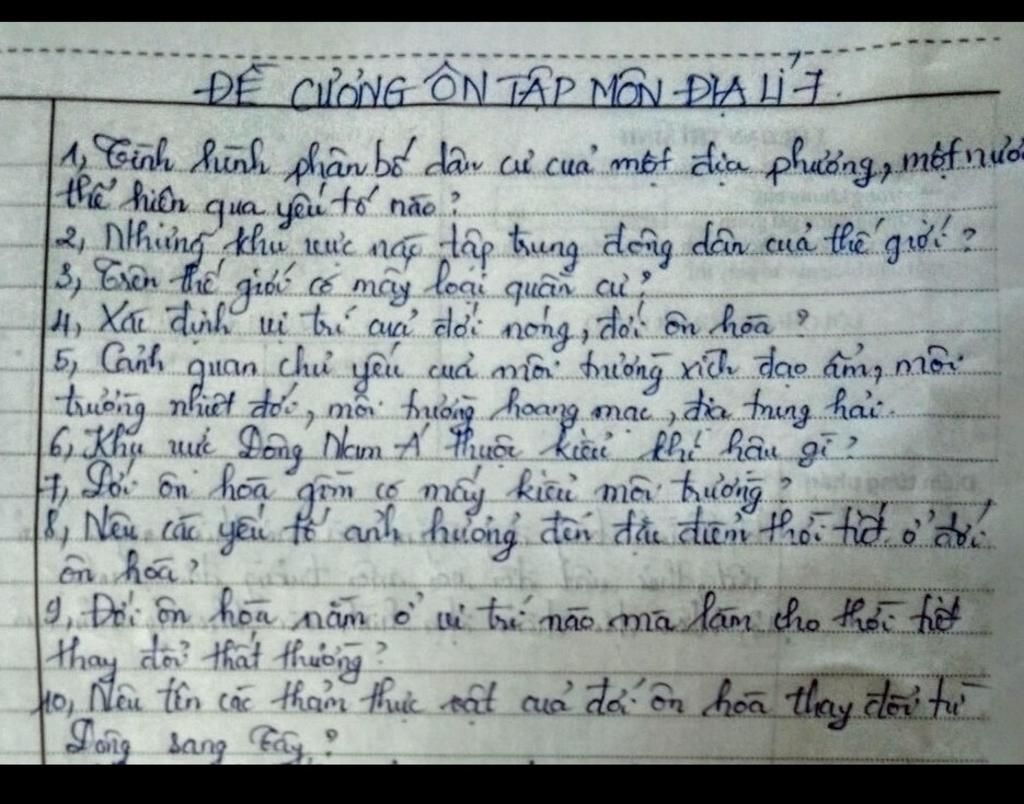 ĐỀ CƯƠNG ÔN TẬP MÔN ĐỊA LÍ 7.
1, Tình hình phân bố dân cư của một địa phương, một nước
thể hiện qua yếu tố nào?
2, Những khu vực nào tập trung đông dân của thế giới?
3, Trên thế giới có mấy loại quần cư?
4, Xác định vị trí của đới nóng, đới ôn hòa?
5, Cảnh quan chủ yếu của môi trường xích đạo ẩm, môi
trường nhiệt đới, môi trường hoang mạc, địa trung hải.
6, Khu vực Đông Nam Á thuộc kiểu khí hậu gì?
7, Đới ôn hòa gồm có mấy kiểu môi trường?
8, Nêu các yếu tố ảnh hưởng đến đặc điểm thời tiết ở đới
ôn hòa?
9, Đới ôn hòa nằm ở vị trí nào mà làm cho thời tiết
thay đổi thất thường?
10, Nêu tên các thảm thực vật của đới ôn hòa thay đổi từ
Đông sang Tây?